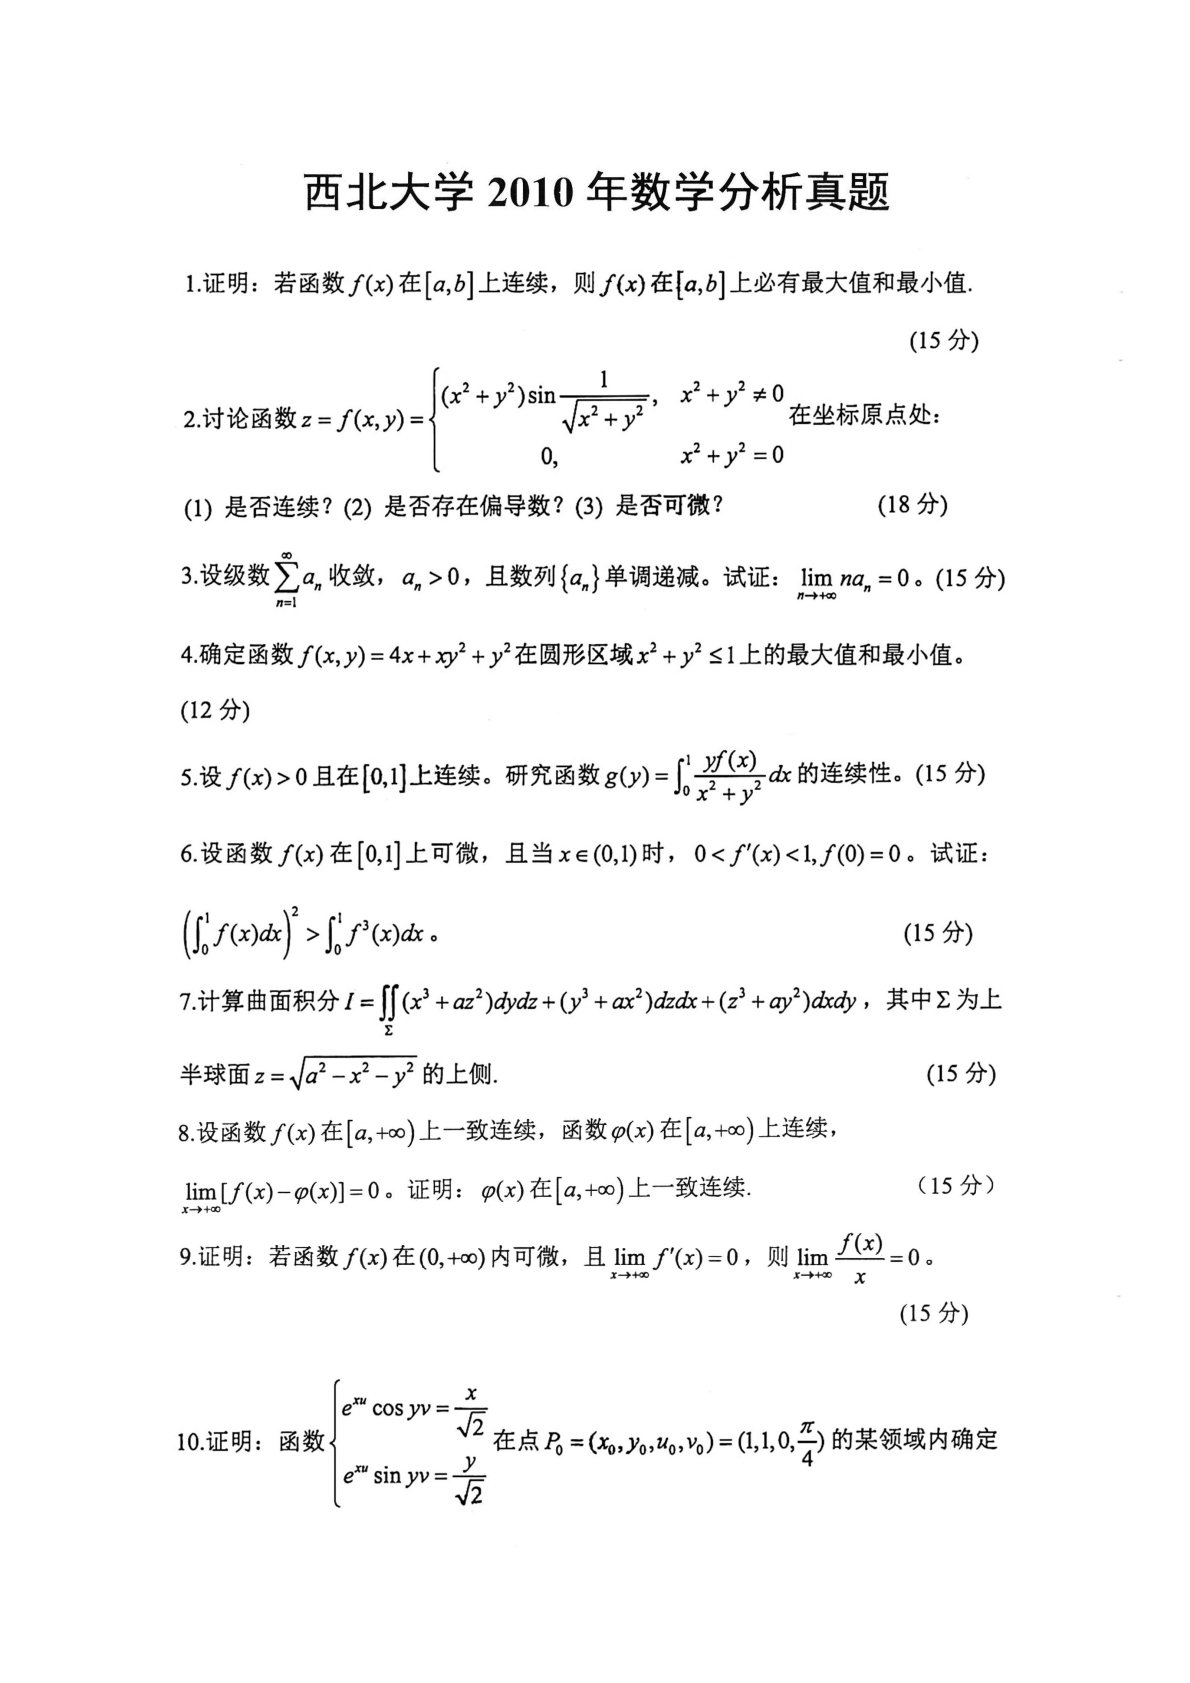 西北大学 2010 年数学分析真题
1.证明：若函数 f(x) 在[a,b]上连续，则 f(x) 在[a,b]上必有最大值和最小值.
(15 分)
2.讨论函数 z = f(x,y) = { (x² + y²)sin 1/√(x² + y²), x² + y² ≠ 0 在坐标原点处：
0, x² + y² = 0
(1) 是否连续？(2) 是否存在偏导数？(3) 是否可微？ (18 分)
3.设级数 ∑_{n=1}^{∞} aₙ 收敛，aₙ > 0，且数列{aₙ}单调递减。试证：lim_{n→+∞} naₙ = 0。(15 分)
4.确定函数 f(x,y) = 4x + xy² + y² 在圆形区域 x² + y² ≤ 1 上的最大值和最小值。
(12 分)
5.设 f(x) > 0 且在[0,1]上连续。研究函数 g(y) = ∫₀¹ yf(x)/(x² + y²) dx 的连续性。(15 分)
6.设函数 f(x) 在[0,1]上可微，且当 x∈(0,1) 时，0 < f′(x) < 1, f(0) = 0。试证：
(∫₀¹ f(x)dx)² > ∫₀¹ f³(x)dx。 (15 分)
7.计算曲面积分 I = ∬_Σ (x³ + az²)dydz + (y³ + ax²)dzdx + (z³ + ay²)dxdy，其中 Σ 为上
半球面 z = √(a² − x² − y²) 的上侧. (15 分)
8.设函数 f(x) 在[a,+∞)上一致连续，函数 φ(x) 在[a,+∞)上连续，
lim_{x→+∞} [f(x) − φ(x)] = 0。证明：φ(x) 在[a,+∞)上一致连续. （15 分）
9.证明：若函数 f(x) 在(0,+∞)内可微，且 lim_{x→+∞} f′(x) = 0，则 lim_{x→+∞} f(x)/x = 0。
(15 分)
10.证明：函数 { e^{xu} cos yv = x/√2 在点 P₀ = (x₀,y₀,u₀,v₀) = (1,1,0,π/4) 的某领域内确定
e^{xu} sin yv = y/√2